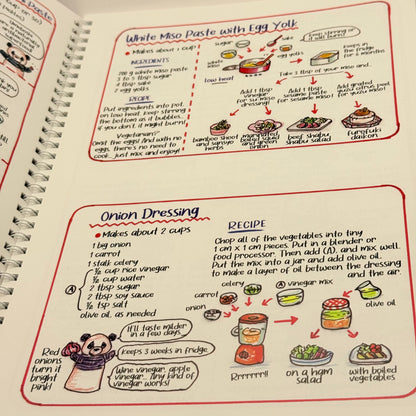 White Miso Paste with Egg Yolk
Makes about 1 cup
INGREDIENTS
200 g white miso paste
3 to 5 tbsp sugar
4 tbsp sake
2 egg yolks
RECIPE
Put ingredients into pot,
on low heat. Keep stirring
the bottom as it bubbles...
if you don't, it might burn!
Vegetarian?
Omit the eggs! And with no
eggs, there's no need to
cook...just mix and enjoy!
sugar
sake
Keep stirring or
it will burn!
white
miso
egg yolks
low heat
Keeps in
the fridge
for 6 months
Take 3 tbsp of your miso and...
Add 1 tbsp
vinegar
for su miso
dressing!
Add 1 tbsp
sesame paste
for sesame
miso!
Add grated
yuzu citrus peel
for yuzu miso!
bamboo shoot
and sansyo
herbs
marinated
boiled squid
and green
onion
beef shabu
shabu salad
furofuki
daikon
Onion Dressing
Makes about 2 cups
1 big onion
1 carrot
1 stalk celery
Ⓐ
½ cup rice vinegar
½ cup water
2 tbsp sugar
2 tbsp soy sauce
½ tsp salt
olive oil, as needed
RECIPE
Chop all of the vegetables into tiny
1 cm x 1 cm pieces. Put in a blender or
food processor. Then add (A), and mix well.
Put the mix into a jar and add olive oil
to make a layer of oil between the dressing
and the air.
celery
Ⓐ vinegar mix
carrot
onion
olive oil
olive oil
Rrrrrrr!!
on a ham
salad
with boiled
vegetables
Red
onions
turn it
bright
pink!
It'll taste milder
in a few days...
Keeps 3 weeks in fridge.
Wine vinegar, apple
vinegar... Any kind of
vinegar works!